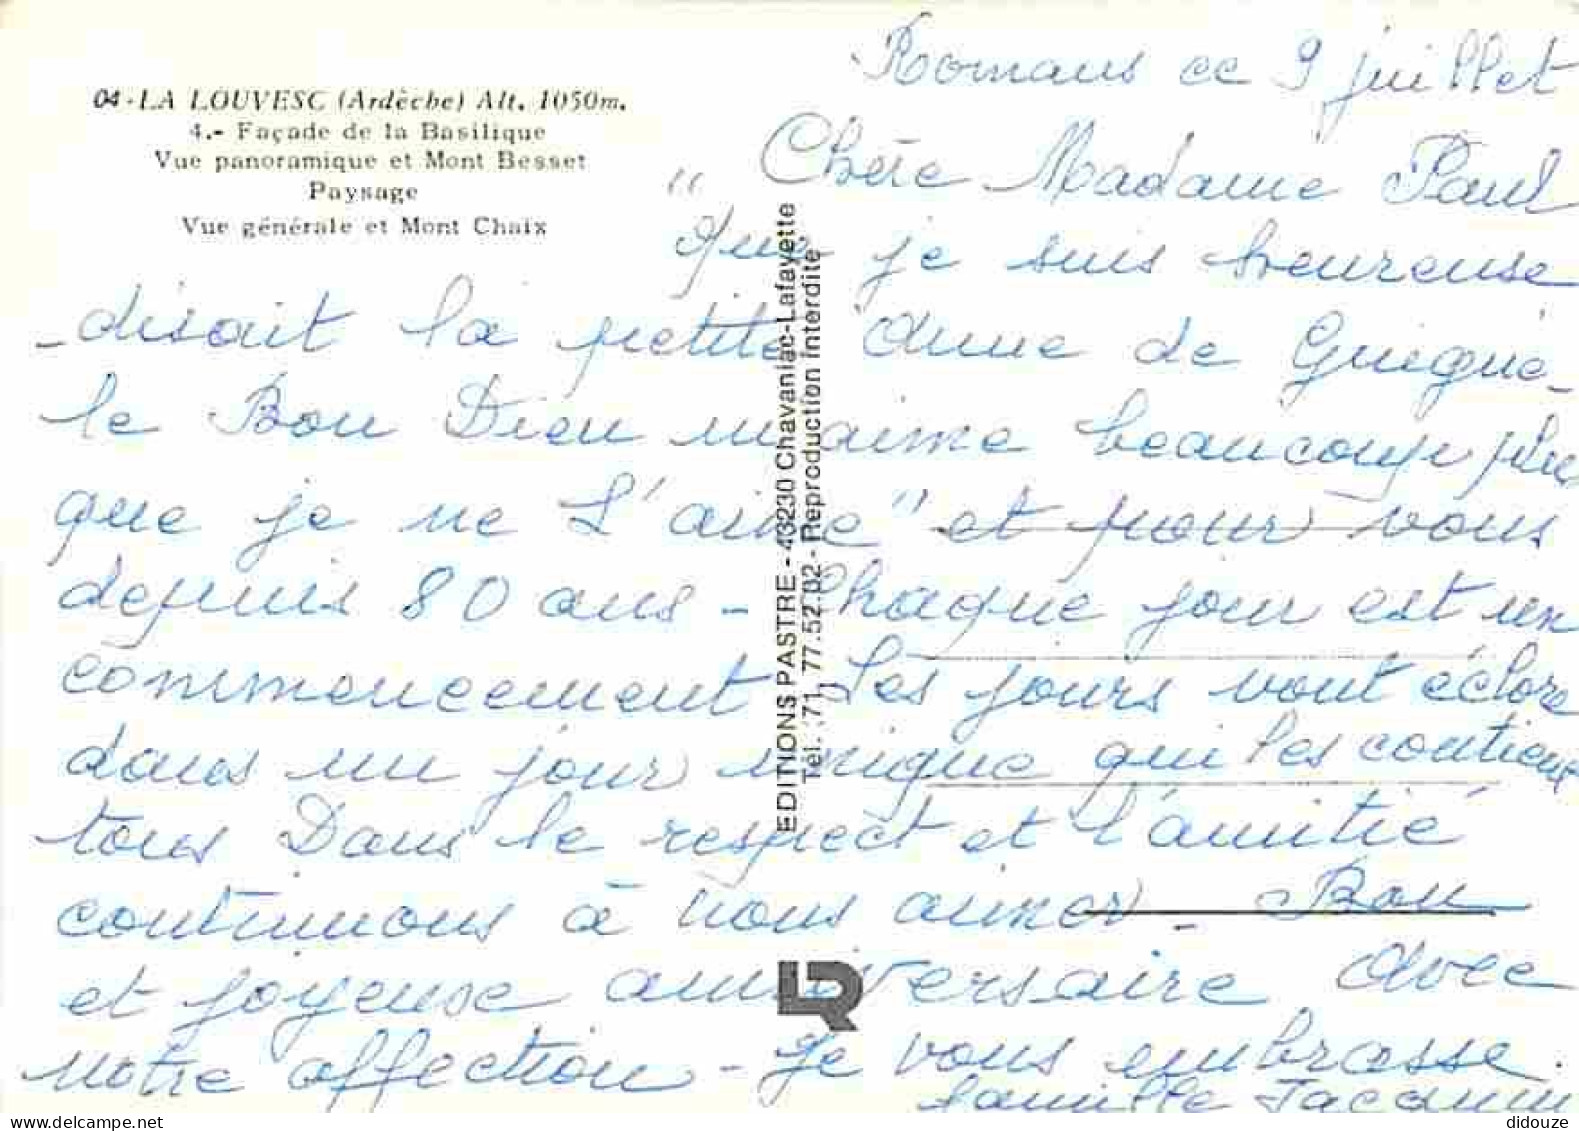 04 - LA LOUVESC (Ardèche) Alt. 1050m.
4.- Façade de la Basilique
Vue panoramique et Mont Besset
Paysage
Vue générale et Mont Chaix
EDITIONS PASTRE - 43230 Chavaniac-Lafayette
Tél. 71 77.52.02 - Reproduction interdite
LR
Romans ce 9 juillet
Chère Madame Paul
" que je suis heureuse
- disait la petite Anne de Guigné -
le Bon Dieu m'aime beaucoup plus
que je ne L'aime" et pour vous
depuis 80 ans - Chaque jour est un
commencement Les jours vont éclore
dans un jour unique qui les contient
tous Dans le respect et l'amitié
continuons à nous aimer - Bon
et joyeuse anniversaire Avec
notre affection - Je vous embrasse.
famille Jacquin
didouze